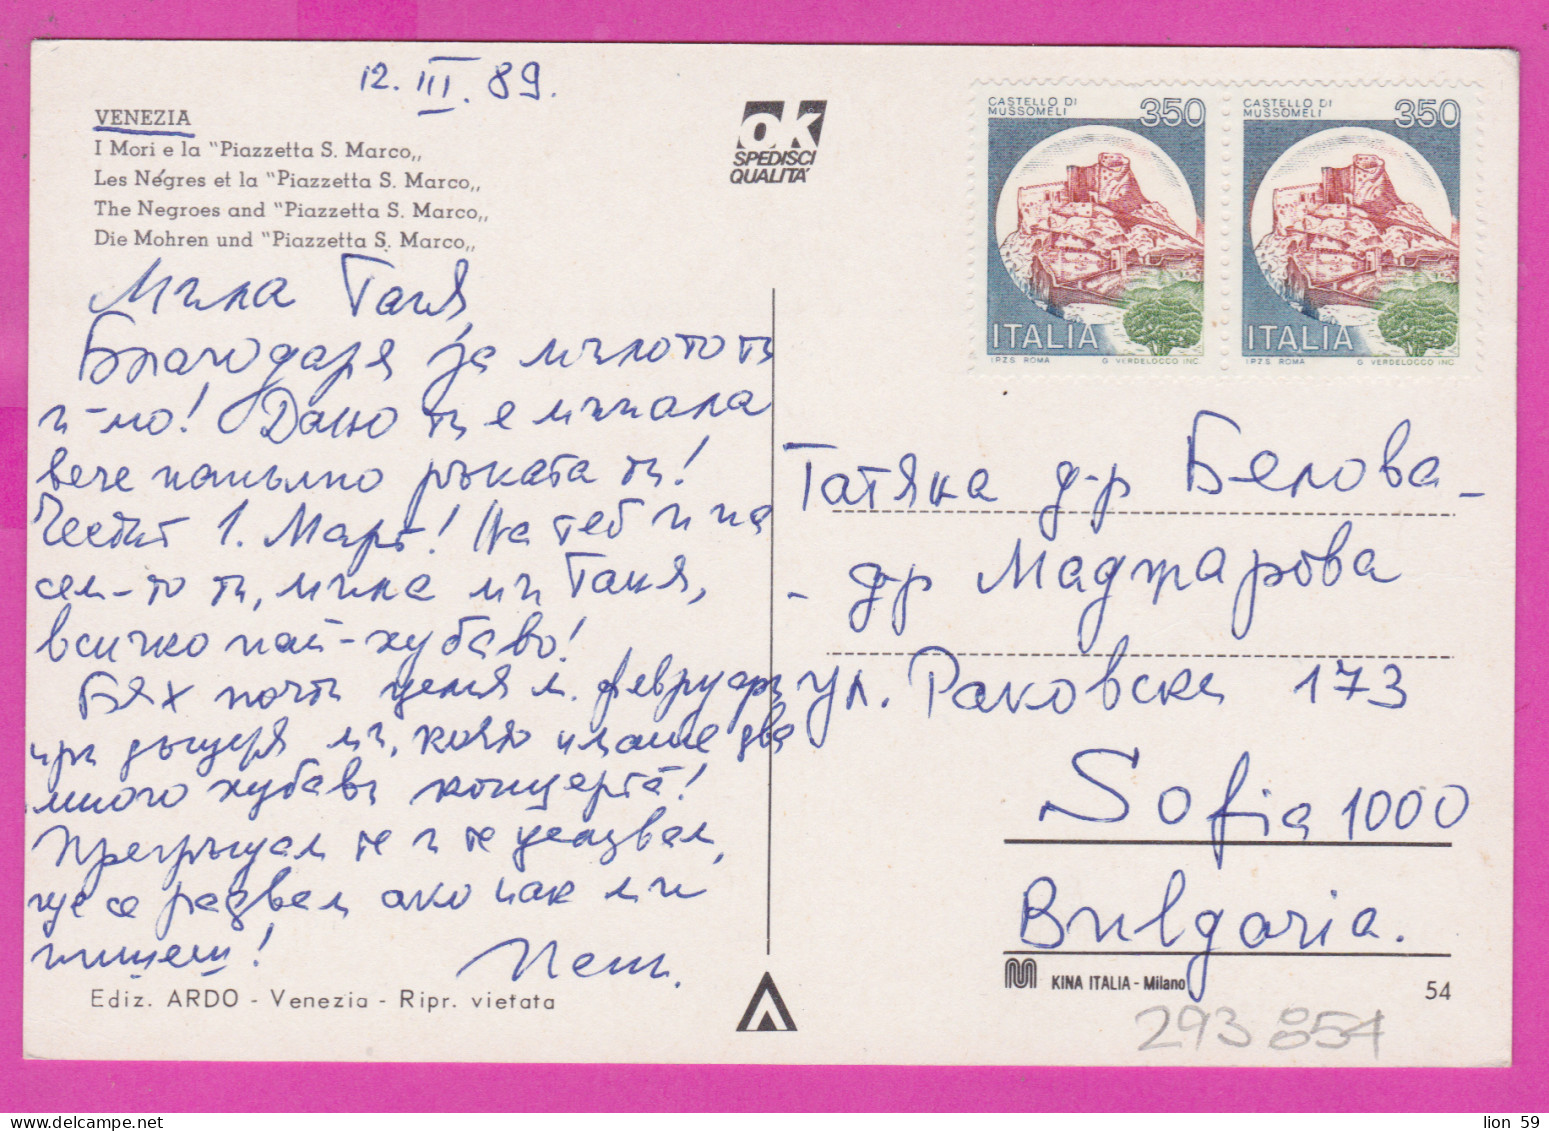 12. III. 89.
VENEZIA
I Mori e la "Piazzetta S. Marco,,
Les Négres et la "Piazzetta S. Marco,,
The Negroes and "Piazzetta S. Marco,,
Die Mohren und "Piazzetta S. Marco,,
OK
SPEDISCI
QUALITA'
CASTELLO DI
MUSSOMELI
350
ITALIA
I.P.Z.S. ROMA
G. VERDELOCCO INC.
CASTELLO DI
MUSSOMELI
350
ITALIA
I.P.Z.S. ROMA
G. VERDELOCCO INC.
Мила Таня,
Благодаря за милото ти
п-мо! Дано ти е минала
вече напълно ръката ти!
Честит 1. Март! На теб и на
сем-то ти, мила ми Таня,
всичко най-хубаво!
Бях почти целия м. февруари
при дъщеря ми, която имаше два
много хубави концерта!
Прегръщам те и те целувам,
ще се радвам ако пак ми
пишеш!
Татяна д-р Белова -
- д-р Маджарова
ул. Раковски 173
Sofia 1000
Bulgaria.
Ediz. ARDO - Venezia - Ripr. vietata
KINA ITALIA - Milano
54
293 854
lion 59